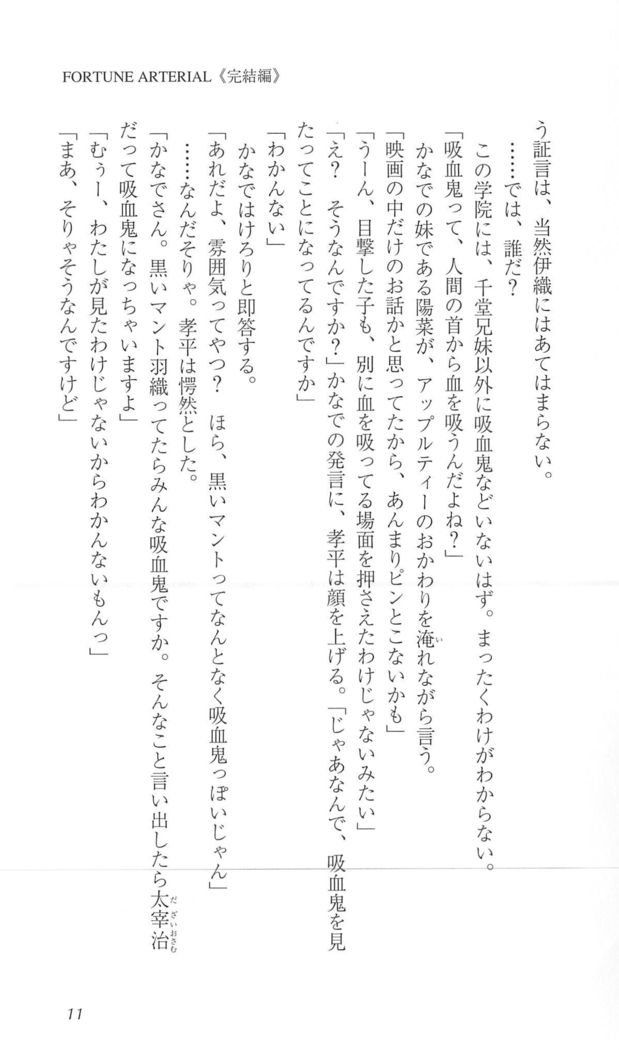 FORTUNE ARTERIAL《完結編》
う証言は、当然伊織にはあてはまらない。
……では、誰だ？
この学院には、千堂兄妹以外に吸血鬼などいないはず。まったくわけがわからない。
「吸血鬼って、人間の首から血を吸うんだよね？」
かなでの妹である陽菜が、アップルティーのおかわりを淹れながら言う。
「映画の中だけのお話かと思ってたから、あんまりピンとこないかも」
「うーん、目撃した子も、別に血を吸ってる場面を押さえたわけじゃないみたい」
「え？　そうなんですか？」かなでの発言に、孝平は顔を上げる。「じゃあなんで、吸血鬼を見
たってことになってるんですか」
「わかんない」
かなではけろりと即答する。
「あれだよ、雰囲気ってやつ？　ほら、黒いマントってなんとなく吸血鬼っぽいじゃん」
……なんだそりゃ。孝平は愕然とした。
「かなでさん。黒いマント羽織ってたらみんな吸血鬼ですか。そんなこと言い出したら太宰治
だって吸血鬼になっちゃいますよ」
「むぅー、わたしが見たわけじゃないからわかんないもんっ」
「まあ、そりゃそうなんですけど」
11